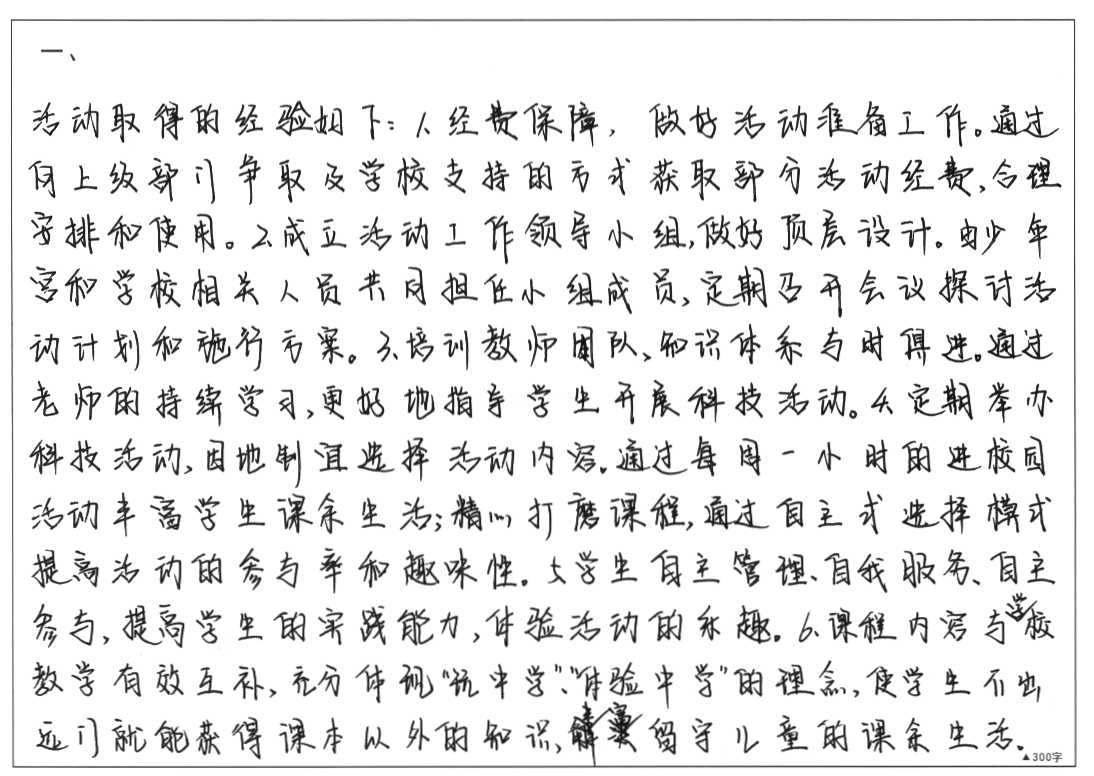 一、
活动取得的经验如下:1、经费保障,做好活动准备工作。通过
向上级部门争取及学校支持的方式获取部分活动经费,合理
安排和使用。2、成立活动工作领导小组,做好顶层设计。由少年
宫和学校相关人员共同担任小组成员,定期召开会议探讨活
动计划和施行方案。3、培训教师团队、知识体系与时俱进。通过
老师的持续学习,更好地指导学生开展科技活动。4、定期举办
科技活动,因地制宜选择活动内容。通过每周一小时的进校园
活动丰富学生课余生活;精心打磨课程,通过自主式选择模式
提高活动的参与率和趣味性。5、学生自主管理、自我服务、自主
参与,提高学生的实践能力,体验活动的乐趣。6、课程内容与学校
教学有效互补,充分体现“玩中学”、“体验中学”的理念,使学生不出
远门就能获得课本以外的知识,丰富留守儿童的课余生活。
▲300字